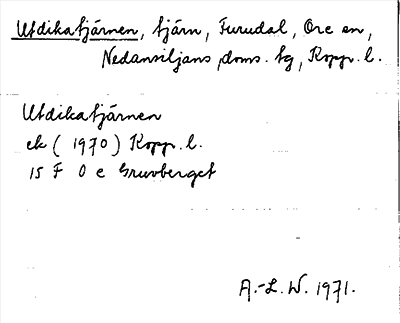 Utdikatjärnen, tjärn, Furudal, Ore sn,
Nedansiljans doms. tg, Kopp. l.
Utdikatjärnen
ek (1970) Kopp. l.
15 F 0 e Gruvberget
A.-L. W. 1971.